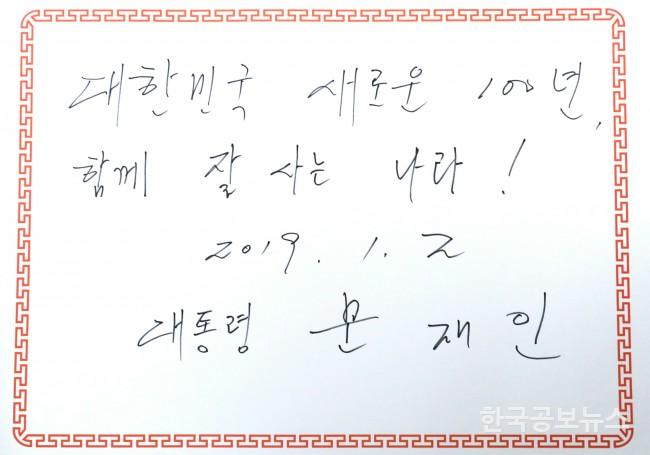 대한민국 새로운 100년,
함께 잘 사는 나라!
2019. 1. 2
대통령 문 재 인
한국공보뉴스